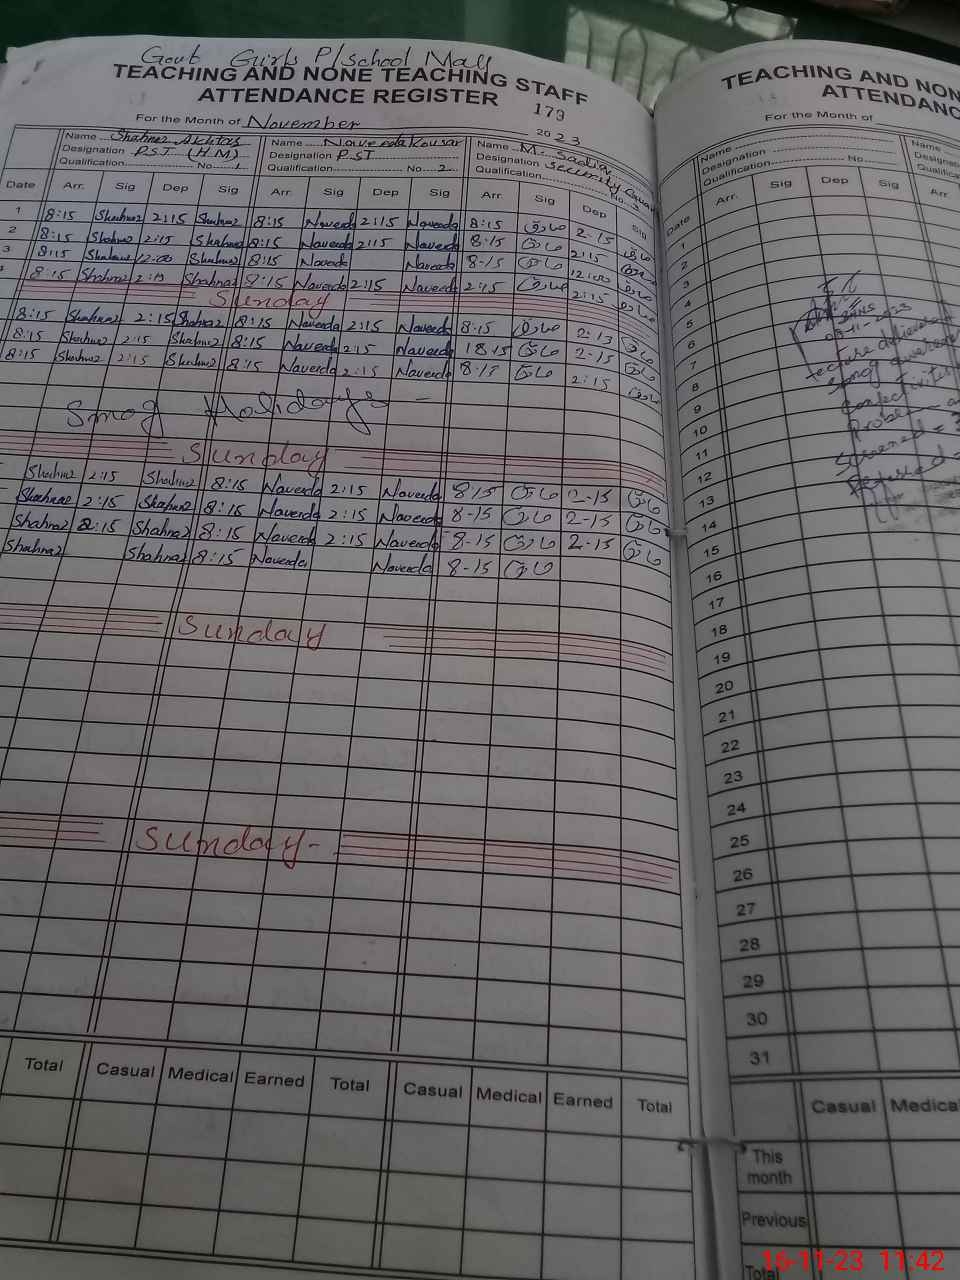 Govt Girls P/School Mall
TEACHING AND NONE TEACHING STAFF
ATTENDANCE REGISTER 173
For the Month of November 2023
Name Shahnaz Akhtar Name Naveeda Kousar Name M. Sadiq
Designation PST (H.M) Designation PST Designation Security Guard
Qualification No 1 Qualification No 2 Qualification No 3
Date Arr. Sig Dep Sig Arr. Sig Dep Sig Arr. Sig Dep Sig
1 8:15 Shahnaz 2:15 Shahnaz 8:15 Naveeda 2:15 Naveeda 8:15 صادق 2-15 صادق
2 8:15 Shahnaz 2:15 Shahnaz 8:15 Naveeda 2:15 Naveeda 8-15 صادق 2:15 صادق
3 8:15 Shahnaz 12:00 Shahnaz 8:15 Naveeda Naveeda 8-15 صادق 12:00 صادق
8:15 Shahnaz 2:15 Shahnaz 8:15 Naveeda 2:15 Naveeda 2:15 صادق 2:15 صادق
Sunday
8:15 Shahnaz 2:15 Shahnaz 8:15 Naveeda 2:15 Naveeda 8-15 صادق 2-13 صادق
8:15 Shahnaz 2:15 Shahnaz 8:15 Naveeda 2:15 Naveeda 18 15 صادق 2-15 صادق
8:15 Shahnaz 2:15 Shahnaz 8:15 Naveeda 2:15 Naveeda 8-15 صادق 2:15 صادق
Smog Holidays -
Sunday
Shahnaz 2:15 Shahnaz 8:15 Naveeda 2:15 Naveeda 8-15 صادق 2-15 صادق
Shahnaz 2:15 Shahnaz 8:15 Naveeda 2:15 Naveeda 8-15 صادق 2-15 صادق
Shahnaz 2:15 Shahnaz 8:15 Naveeda 2:15 Naveeda 8-15 صادق 2-15 صادق
Shahnaz Shahnaz 8:15 Naveeda Naveeda 8-15 صادق
Sunday
Sunday-
Total Casual Medical Earned Total Casual Medical Earned Total
TEACHING AND NON
ATTENDANC
For the Month of
Name Name
Designation Designa
Qualification No Qualific
Date Arr. Sig Dep Sig Arr.
1
2
3
4
5
6
7
8
9
10
11
12
13
14
15
16
17
18
19
20
21
22
23
24
25
26
27
28
29
30
31
-11-2023
Casual Medica
This
month
Previous
Total
16-11-23 11:42